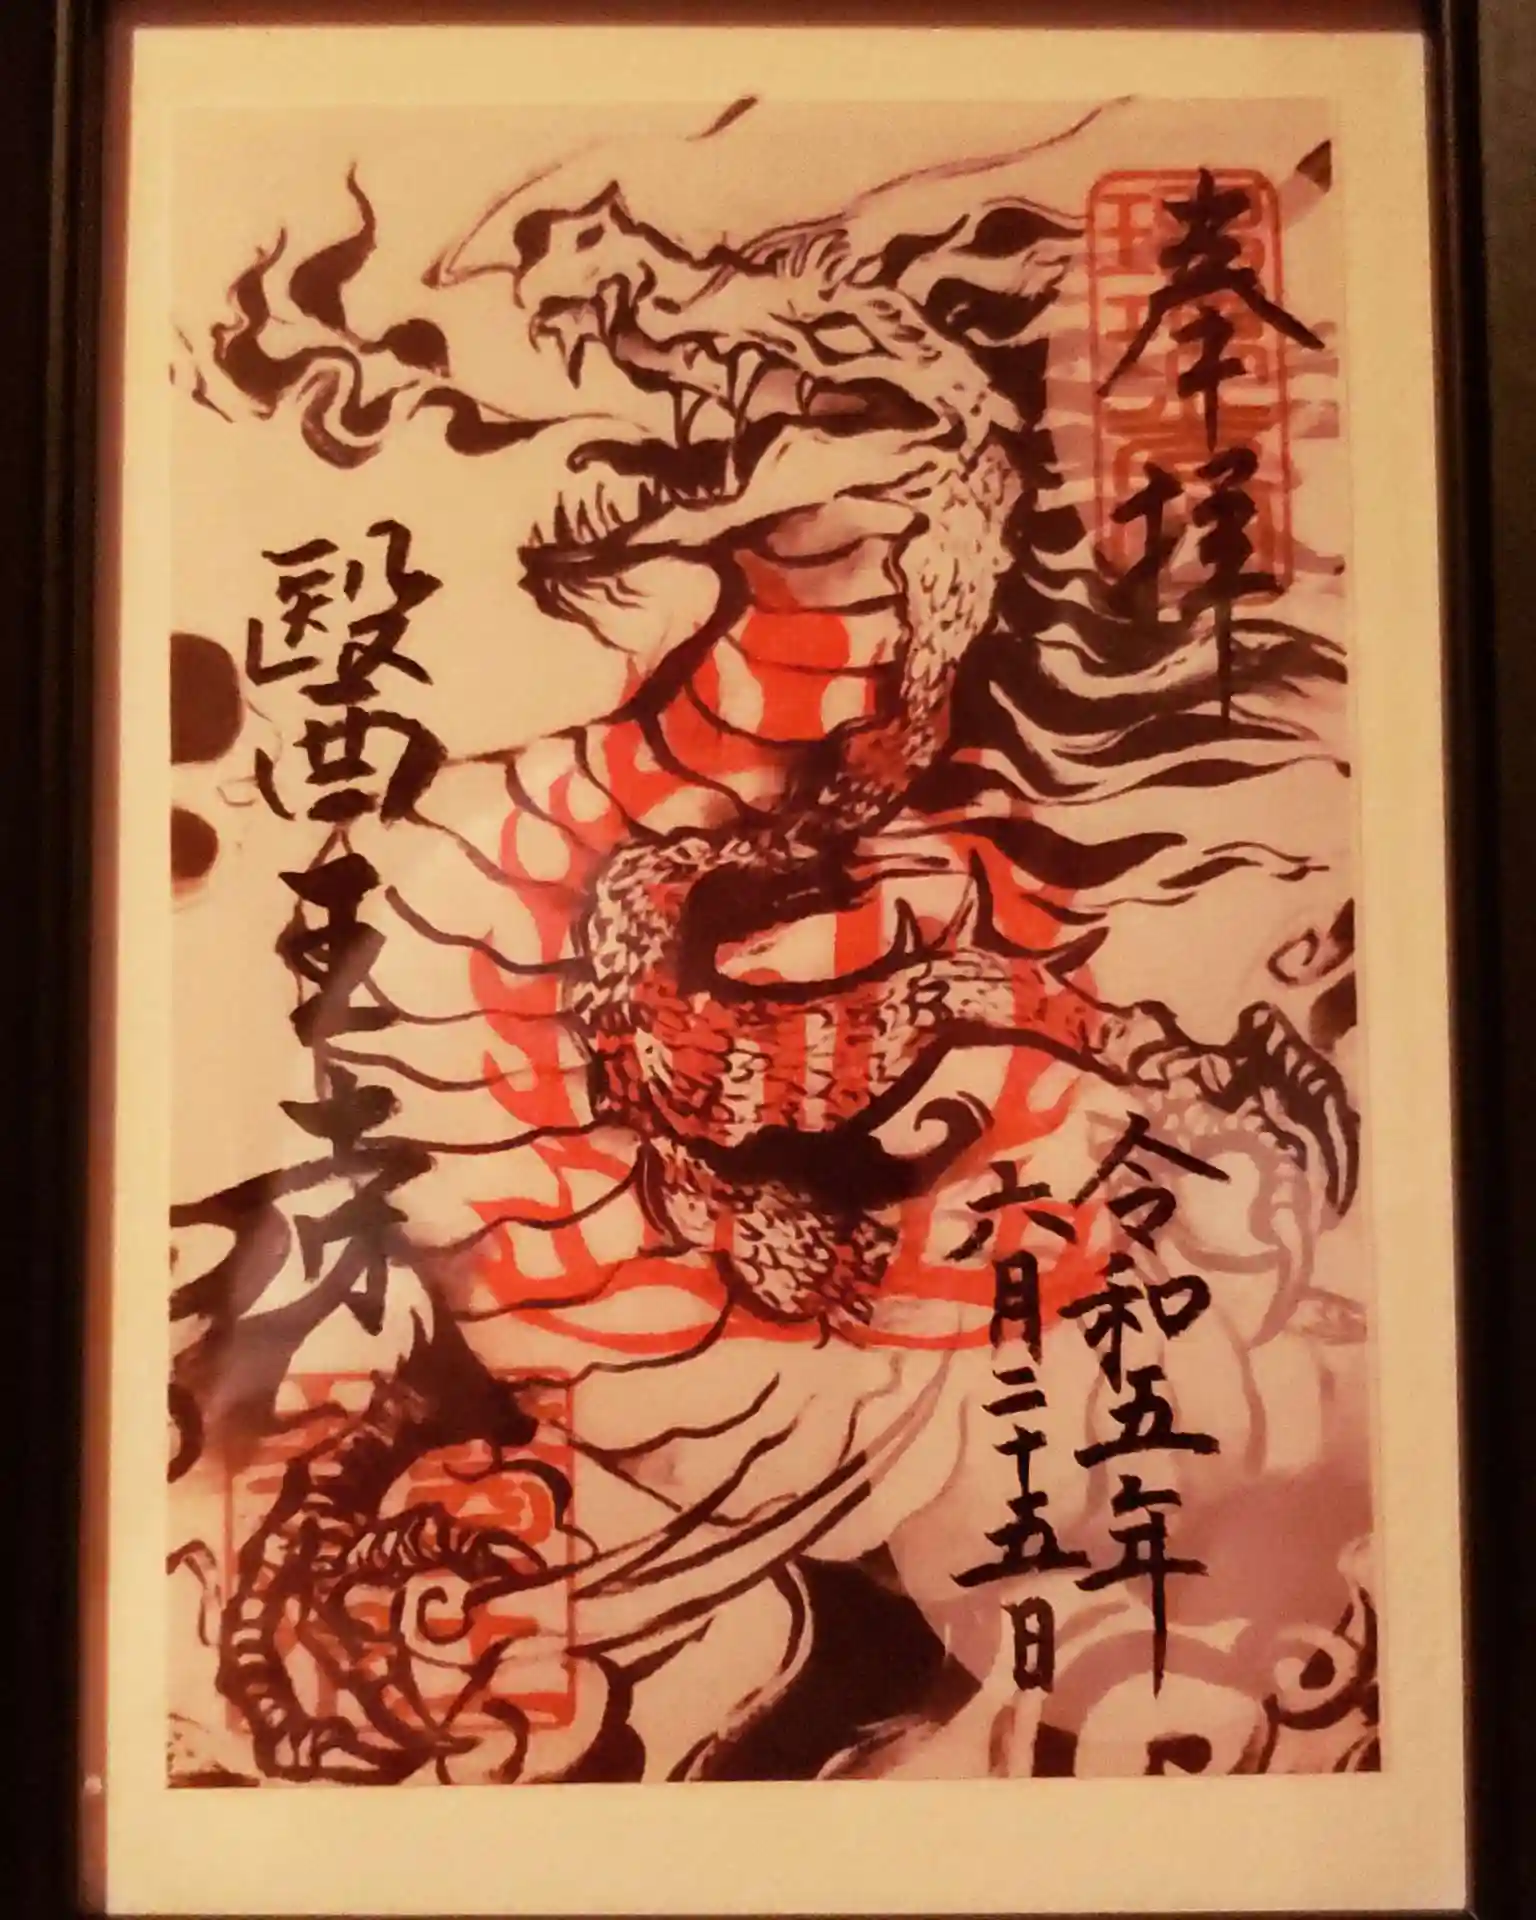 奉拝
令和五年
六月二十五日
醫王